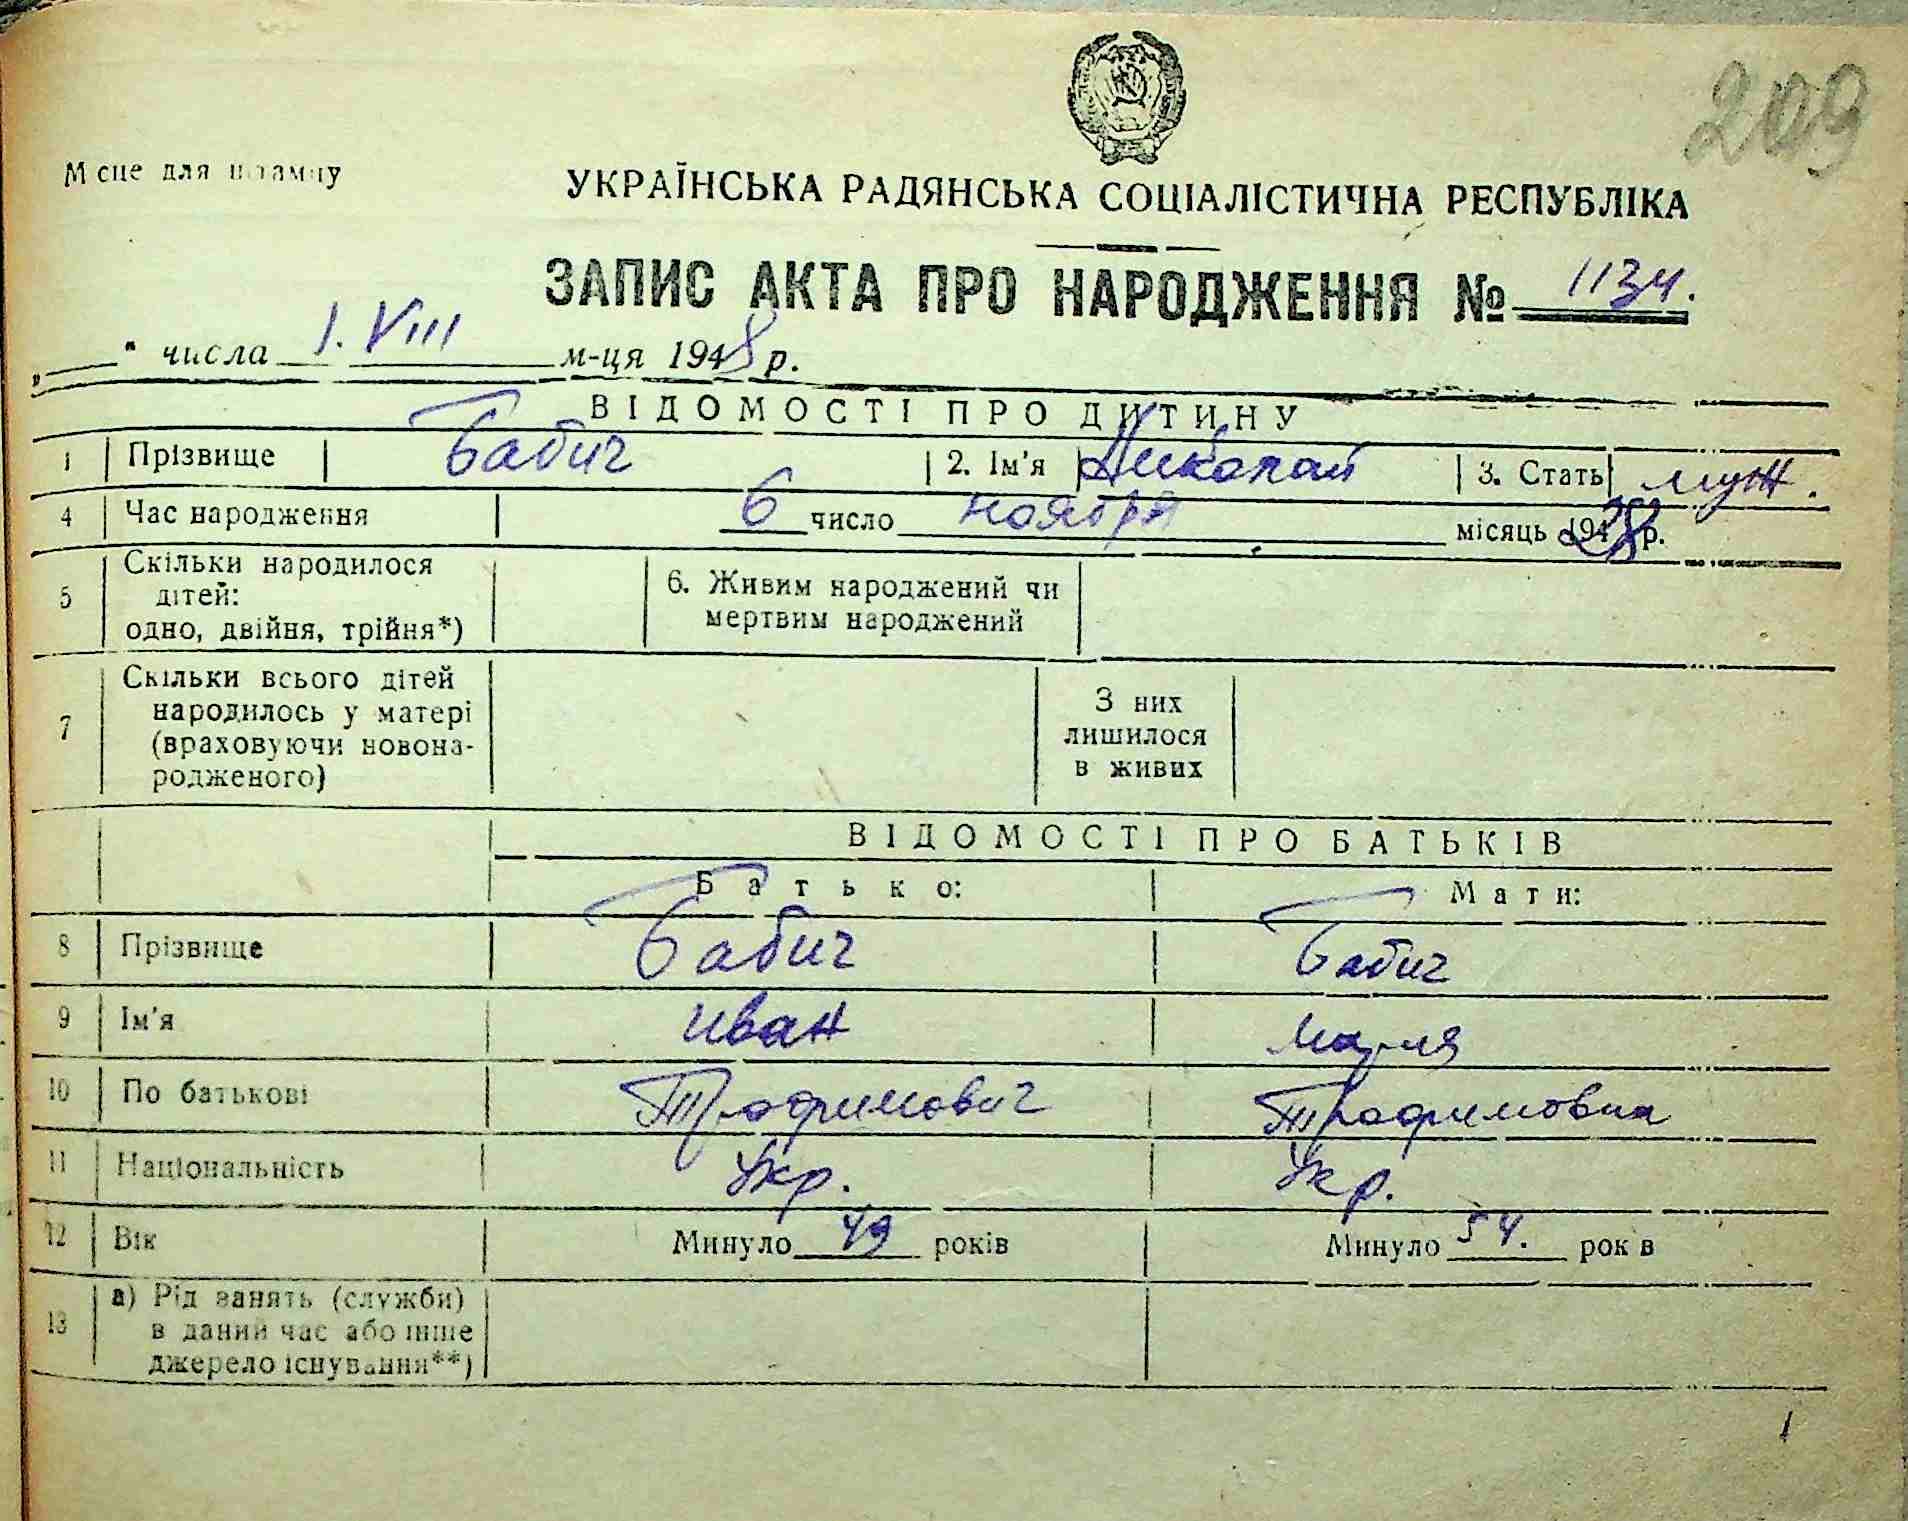 209
Місце для штампу
УКРАЇНСЬКА РАДЯНСЬКА СОЦІАЛІСТИЧНА РЕСПУБЛІКА
ЗАПИС АКТА ПРО НАРОДЖЕННЯ № 1134.
„___“ числа 1. VIII м-ця 1948 р.
ВІДОМОСТІ ПРО ДИТИНУ
1 Прізвище Бабич 2. Ім'я Николай 3. Стать муж.
4 Час народження 6 число ноября місяць 1928 р.
5 Скільки народилося
дітей:
одно, двійня, трійня*)
6. Живим народжений чи
мертвим народжений
7 Скільки всього дітей
народилось у матері
(враховуючи новона-
родженого)
З них
лишилося
в живих
ВІДОМОСТІ ПРО БАТЬКІВ
Батько: Мати:
8 Прізвище Бабич Бабич
9 Ім'я Иван Мария
10 По батькові Трофимович Трофимовна
11 Національність Укр. Укр.
12 Вік Минуло 49 років Минуло 54. рок в
13 а) Рід занять (служби)
в даний час або інше
джерело існування**)
1